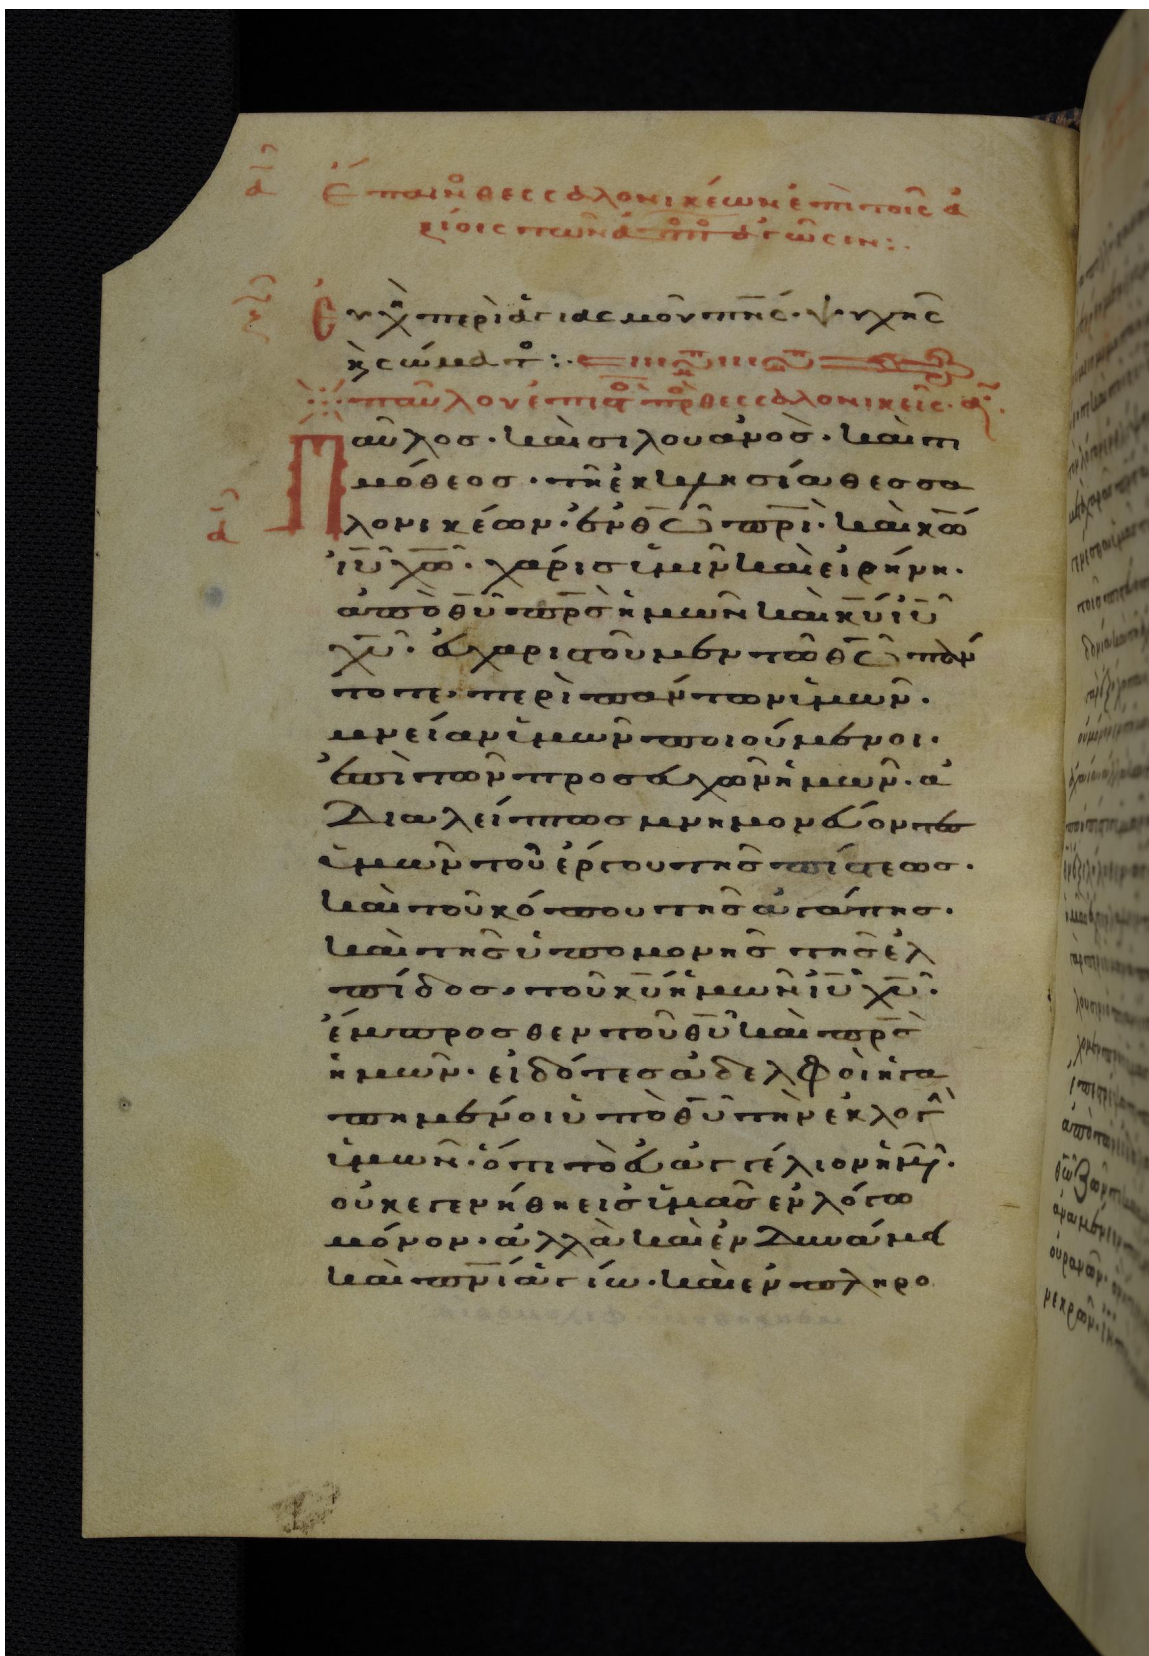 Ἔπαιν θεσσαλονικέων ἐπὶ τοῖς ἀ
ξίοις τῶν
Εὐχ περὶ ἁγιασμοῦ τῆς ψυχῆς
κ σώματ:
παύλου ἐπιστ πρ θεσσαλονικεῖς α
Παῦλος· καὶ σιλουανὸς· καὶ τι
μόθεος· τῆ ἐκκλησία θεσσα
λονικέων· ἐν θω πρι· καὶ κω
ιυ χω· χάρις ὑμῖν καὶ εἰρήνη·
ἀπὸ θυ πρς ἡμῶν καὶ κυ ιυ
χυ· εὐχαριστοῦμεν τῶ θω πάν
τοτε· περὶ πάντων ὑμῶν·
μνείαν ὑμῶν ποιούμενοι·
ἐπὶ τῶν προσευχῶν ἡμῶν· ἀ
διαλείπτως μνημονεύοντες
ὑμῶν τοῦ ἔργου τῆς πίστεως·
καὶ τοῦ κόπου τῆς ἀγάπης·
καὶ τῆς ὑπομονῆς τῆς ἐλ
πίδος· τοῦ κυ ἡμῶν ιυ χυ·
ἔμπροσθεν τοῦ θυ καὶ πρς
ἡμῶν· εἰδότες ἀδελφοὶ ἠγα
πημένοι ὑπὸ θυ τὴν ἐκλογ
ὑμῶν· ὅτι τὸ εὐαγγέλιον ἡμῶν·
οὐκ ἐγενήθη εἰς ὑμᾶς ἐν λόγω
μόνον· ἀλλὰ καὶ ἐν δυνάμει
καὶ πνι ἁγίω· καὶ ἐν πληρο